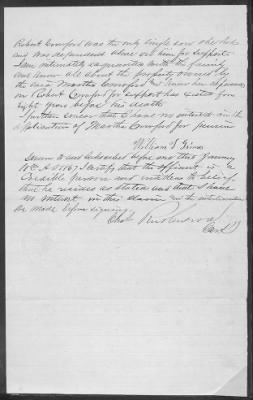 Robert Crawford was the only single son she had
and was dependent alone on him for support
I am intimately acquainted with the family
and know all about the property owned by
the said Martha Crawford and know her dependence
on Robert Crawford for support has existed for
eight years before his death
I further swear that I have no interest in the
application of Martha Crawford for pension
William S
Sworn to and subscribed before me this January
10th A D 1867 I certify that the affiant is a
credible person and entitled to belief
that he resides as stated and that I have
no interest in this claim and the
are made before signing
Chas
Clerk